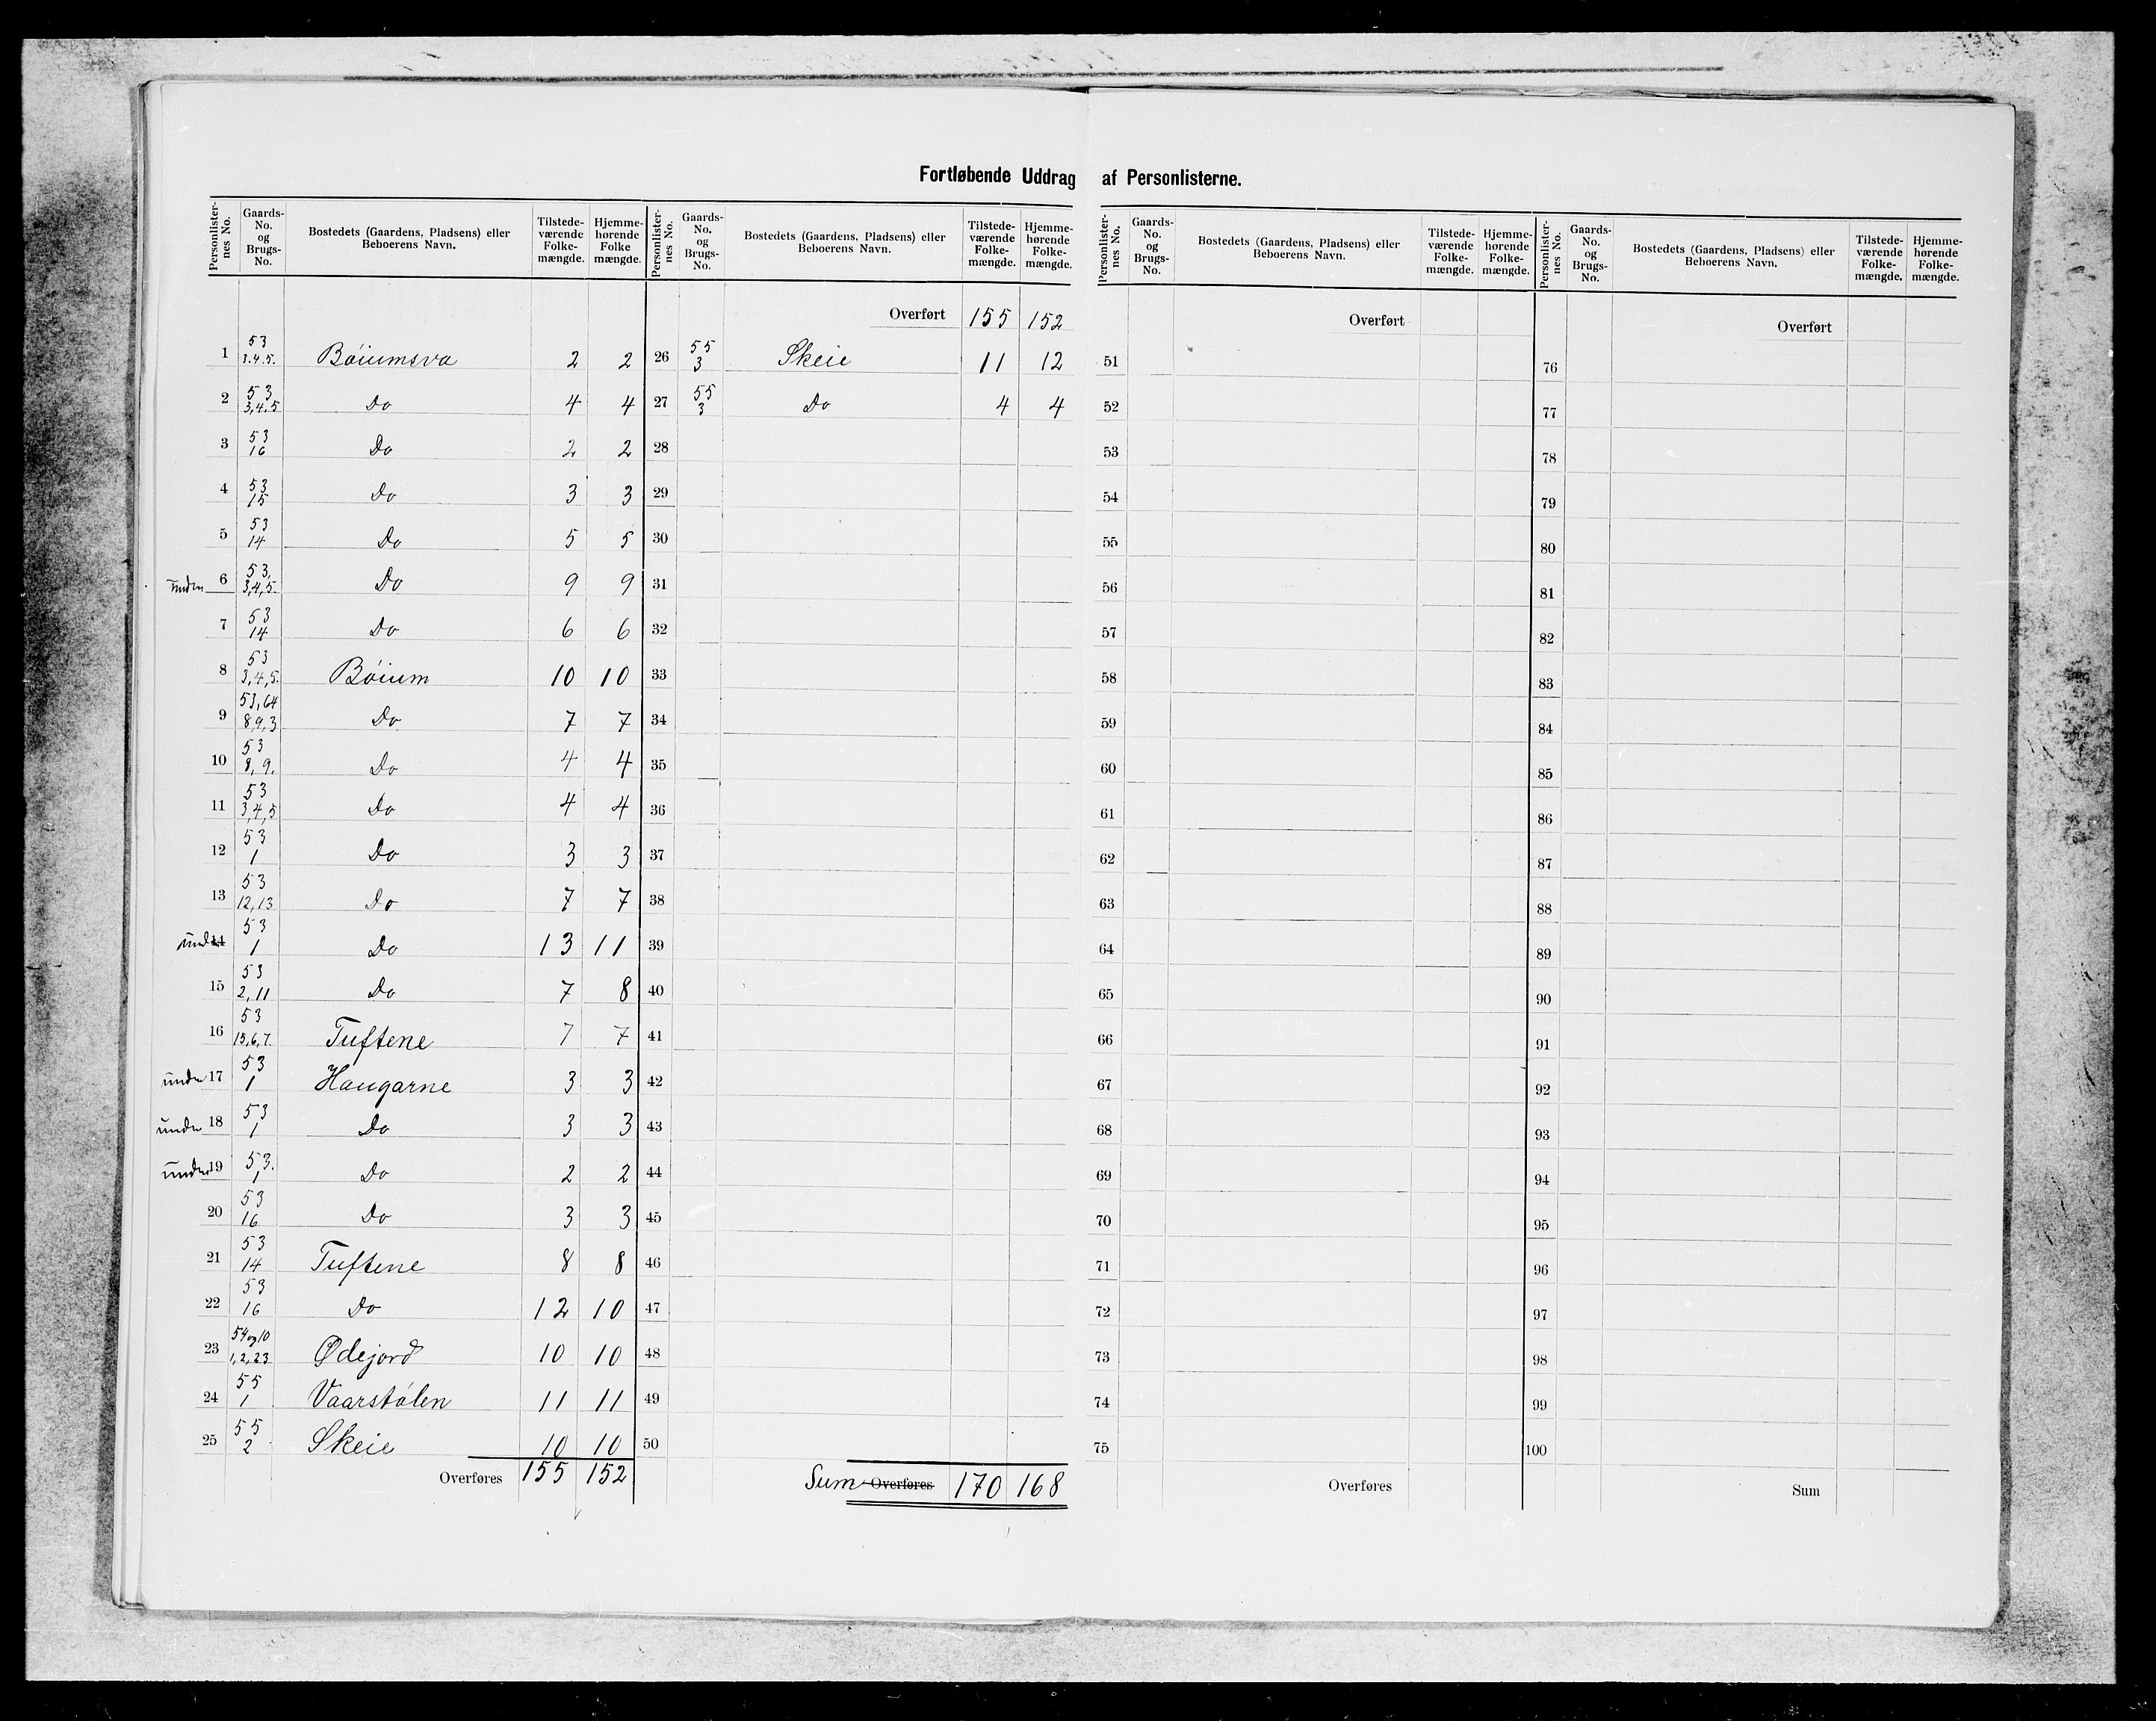 Fortløbende Uddrag af Personlisterne.
Personlister-nes No. | Gaards-No. og Brugs-No. | Bostedets (Gaardens, Pladsens) eller Beboerens Navn. | Tilstede-værende Folke-mængde. | Hjemme-hørende Folke mængde.
1 | 53 3.4.5. | Bóiumsva | 2 | 2
2 | 53 3,4,5 | Do | 4 | 4
3 | 53 16 | Do | 2 | 2
4 | 53 15 | Do | 3 | 3
5 | 53 14 | Do | 5 | 5
under 6 | 53, 3,4,5. | Do | 9 | 9
7 | 53 14 | Do | 6 | 6
8 | 53 3,4,5. | Bóium | 10 | 10
9 | 53,64 8,9,3 | Do | 7 | 7
10 | 53 8,9. | Do | 4 | 4
11 | 53 3,4,5 | Do | 4 | 4
12 | 53 1 | Do | 3 | 3
13 | 53 12,13 | Do | 7 | 7
under 14 | 53 1 | Do | 13 | 11
15 | 53 2,11 | Do | 7 | 8
16 | 53 15,6,7. | Tuftene | 7 | 7
under 17 | 53 1 | Haugarne | 3 | 3
under 18 | 53 1 | Do | 3 | 3
under 19 | 53. 1 | Do | 2 | 2
20 | 53 16 | Do | 3 | 3
21 | 53 14 | Tuftene | 8 | 8
22 | 53 16 | Do | 12 | 10
23 | 54 og 10 1,2,23 | Ødejord | 10 | 10
24 | 55 1 | Vaarstólen | 11 | 11
25 | 55 2 | Skeie | 10 | 10
Overføres 155 152
Personlister-nes No. | Gaards-No. og Brugs-No. | Bostedets (Gaardens, Pladsens) eller Beboerens Navn. | Tilstede-værende Folke-mængde. | Hjemme-hørende Folke-mængde.
Overført 155 152
26 | 55 3 | Skeie | 11 | 12
27 | 55 3 | Do | 4 | 4
28
29
30
31
32
33
34
35
36
37
38
39
40
41
42
43
44
45
46
47
48
49
50
Sum Overføres 170 168
Personlister-nes No. | Gaards-No. og Brugs-No. | Bostedets (Gaardens, Pladsens) eller Beboerens Navn. | Tilstede-værende Folke-mængde. | Hjemme-hørende Folke-mængde.
Overført
51
52
53
54
55
56
57
58
59
60
61
62
63
64
65
66
67
68
69
70
71
72
73
74
75
Overføres
Personlister-nes No. | Gaards-No. og Brugs-No. | Bostedets (Gaardens, Pladsens) eller Beboerens Navn. | Tilstede-værende Folke-mængde. | Hjemme-hørende Folke-mængde.
Overført
76
77
78
79
80
81
82
83
84
85
86
87
88
89
90
91
92
93
94
95
96
97
98
99
100
Sum